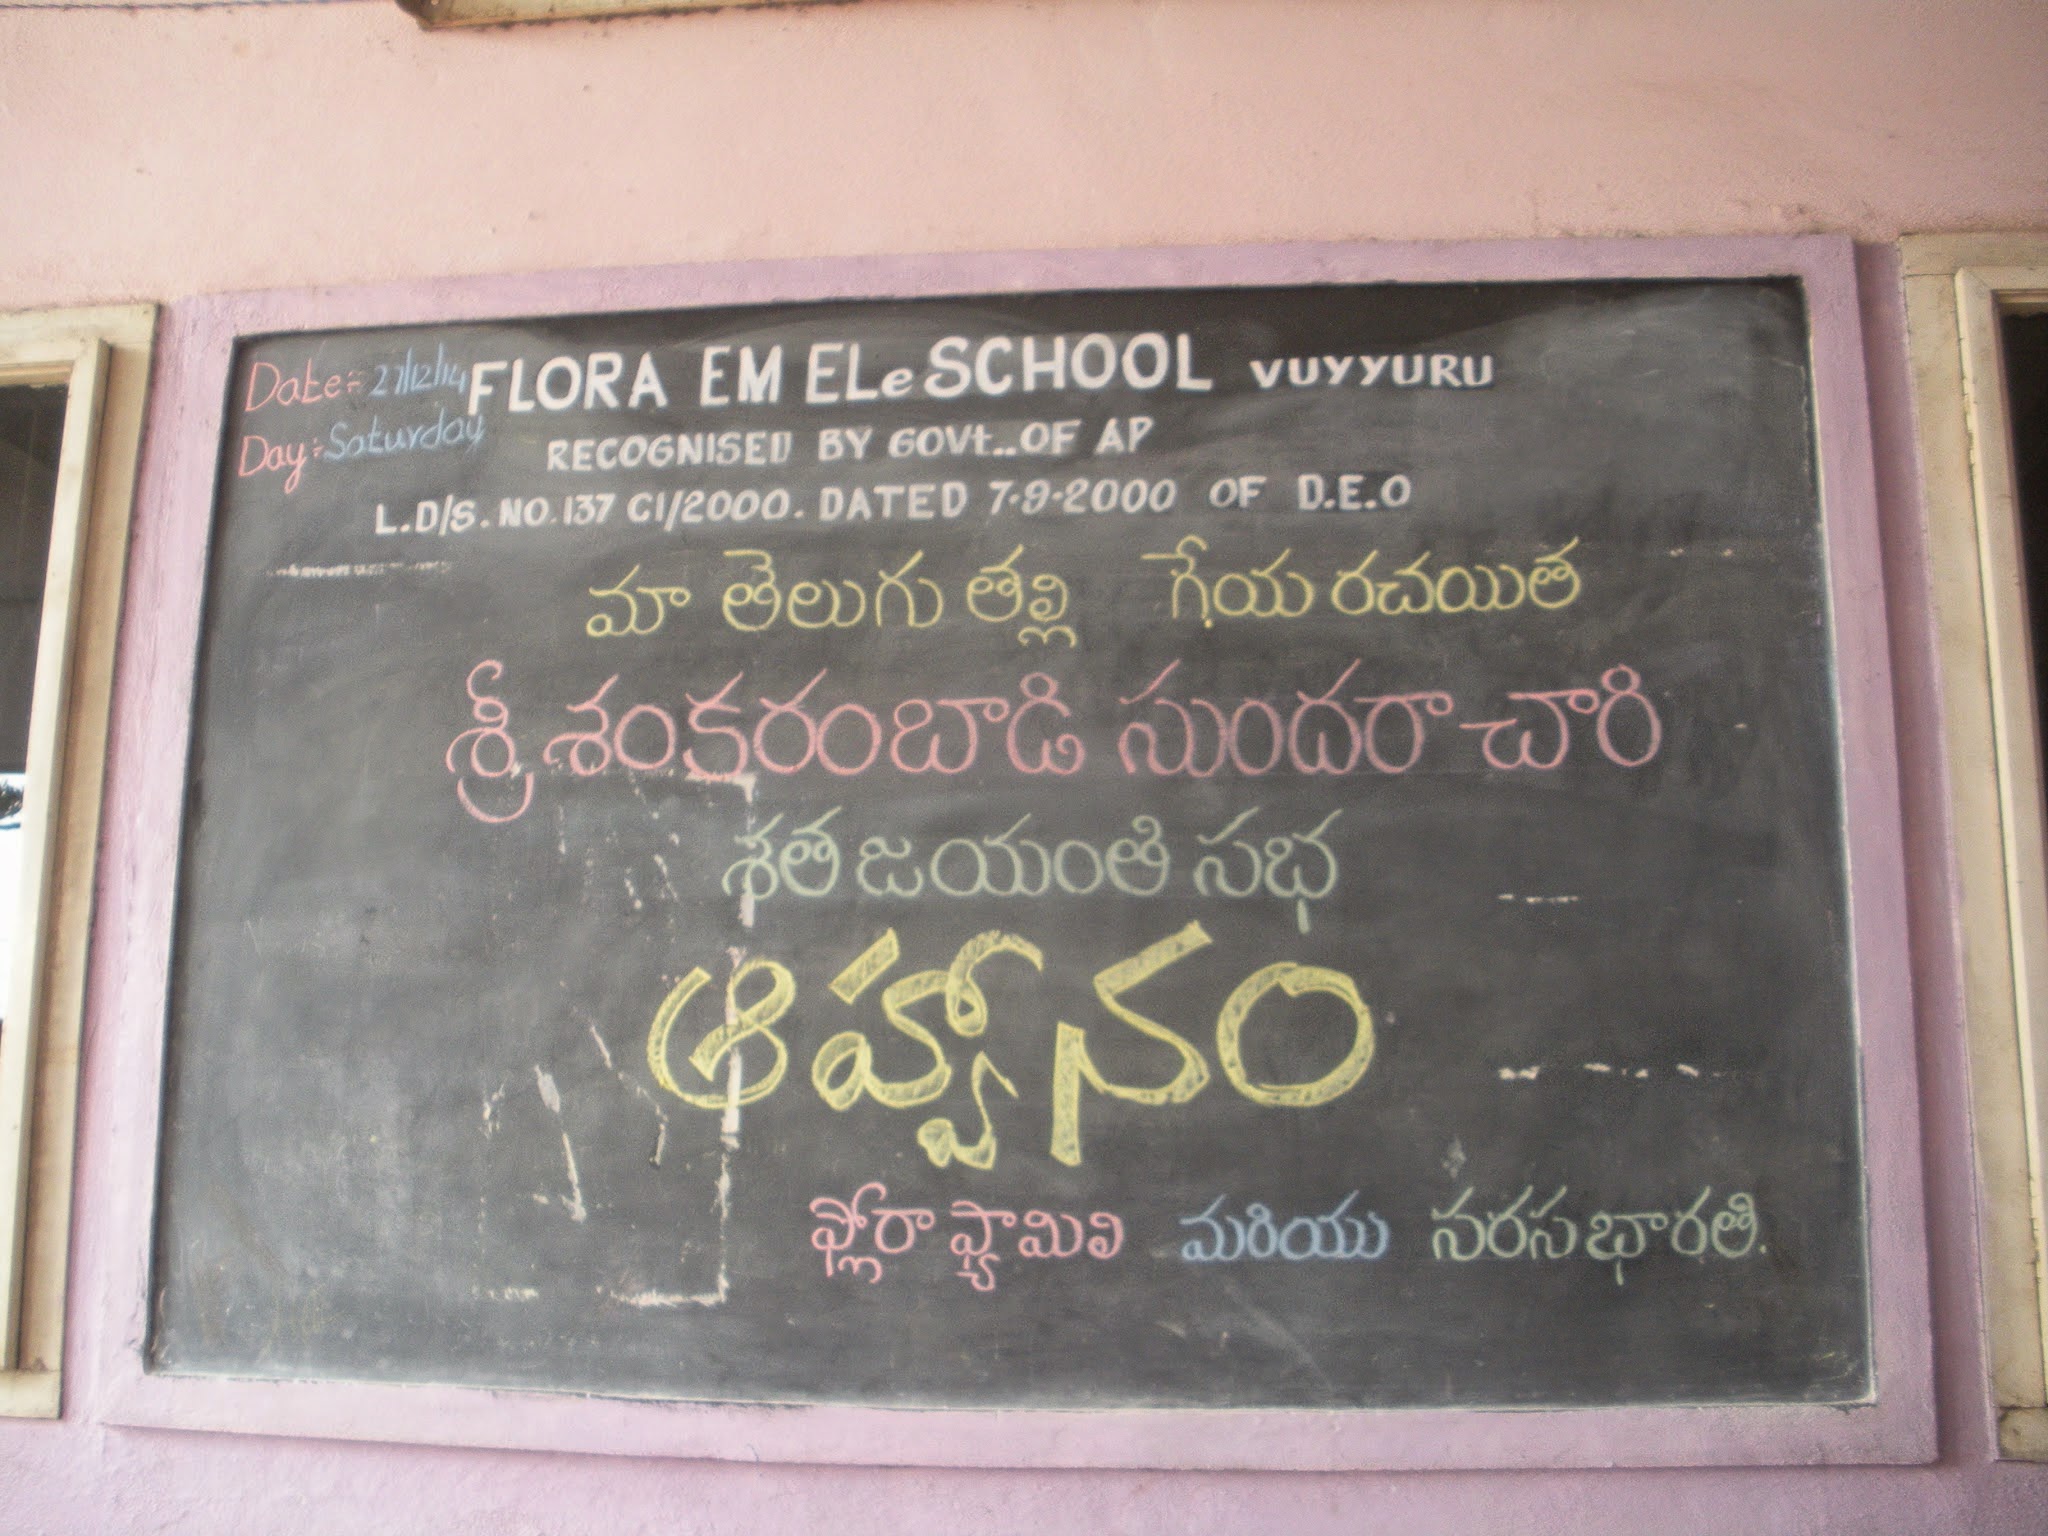 Date:- 27/12/14
Day:- Saturday
FLORA EM ELe SCHOOL VUYYURU
RECOGNISED BY GOVt.. OF AP
L.D/S. NO. 137 C1/2000. DATED 7-9-2000 OF D.E.O
మా తెలుగు తల్లి గేయ రచయిత
శ్రీ శంకరంబాడి సుందరాచారి
శత జయంతి సభ
ఆహ్వానం
ఫ్లోరా ఫ్యామిలి మరియు సరసభారతి.